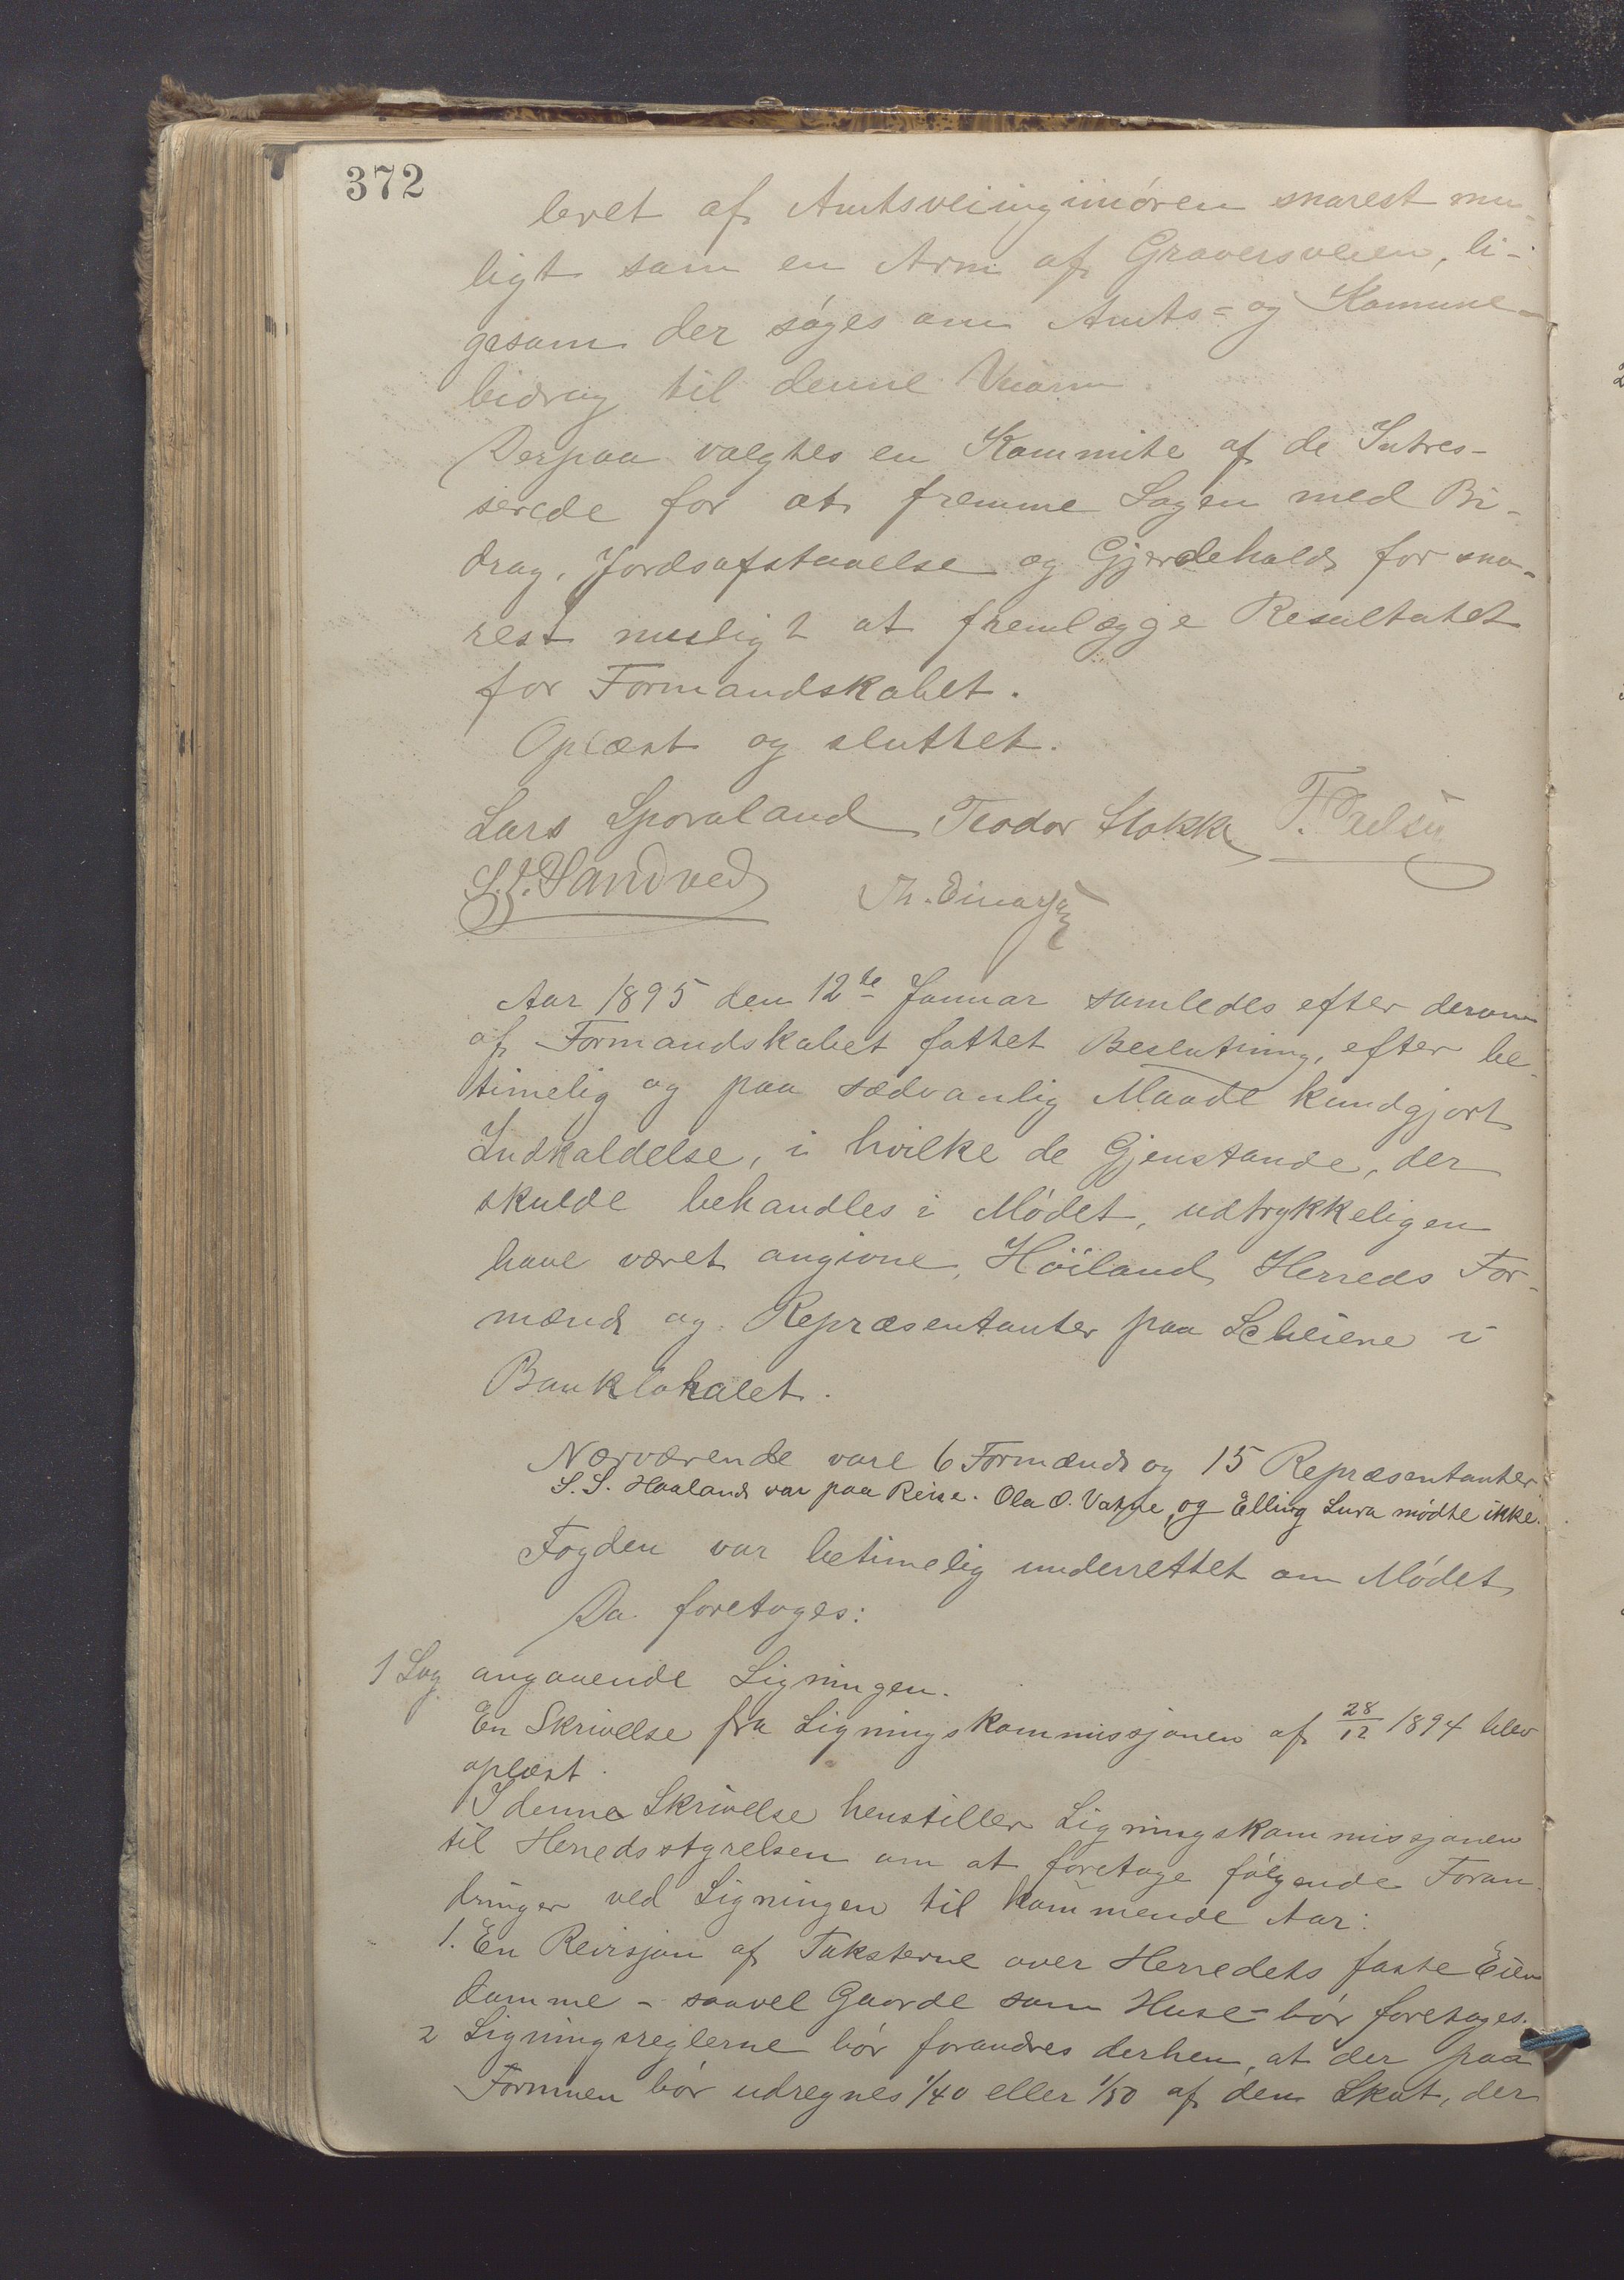 372
levet af Amtsveiinginiøren snarest mu-
ligt som en Arm af Graversveien, li-
gesom der søges om Amts- og Komune-
bidrag til denne Veiarm.
Derpaa valgtes en Kommite af de Intres-
serede for at fremme Sagen med Bi-
drag, Jordsafstaaelse og Gjerdehold, for sna-
rest muligt at fremlægge Resultatet
for Formandskabet.
Oplæst og sluttet.
Lars Sporaland Teodor Stokke
Sandved Th. Einarsen
Aar 1895 den 12te Januar samledes efter derom
af Formandskabet fattet Beslutning, efter be-
timelig og paa sædvanlig Maade kundgjort
Indkaldelse, i hvilke de Gjenstande, der
skulde behandles i Mødet, udtrykkeligen
have været angivne, Høiland Herreds For-
mænd og Repræsentanter paa Scheiene i
Banklokalet.
Nærværende vare 6 Formænd og 15 Repræsentanter
S. S. Haaland var paa Reise. Ola O. Vatne, og Elling Lura mødte ikke.
Fogden var betimelig underrettet om Mødet
Da foretoges:
1 Sag angaaende Ligningen.
En Skrivelse fra Ligningskommissjonen af 28/12 1894 blev
oplæst.
I denne Skrivelse henstiller Ligningskommissjonen
til Herredsstyrelsen om at foretage følgende Foran-
dringer ved Ligningen til kommende Aar:
1. En Reirsjon af Taksterne over Herredets faste Eien
domme - saavel Gaarde som Huse - bør foretages.
2 Ligningsreglerne bør forandres derhen, at der paa
Formuen bør udregnes 1/40 eller 1/50 af den Skat, der